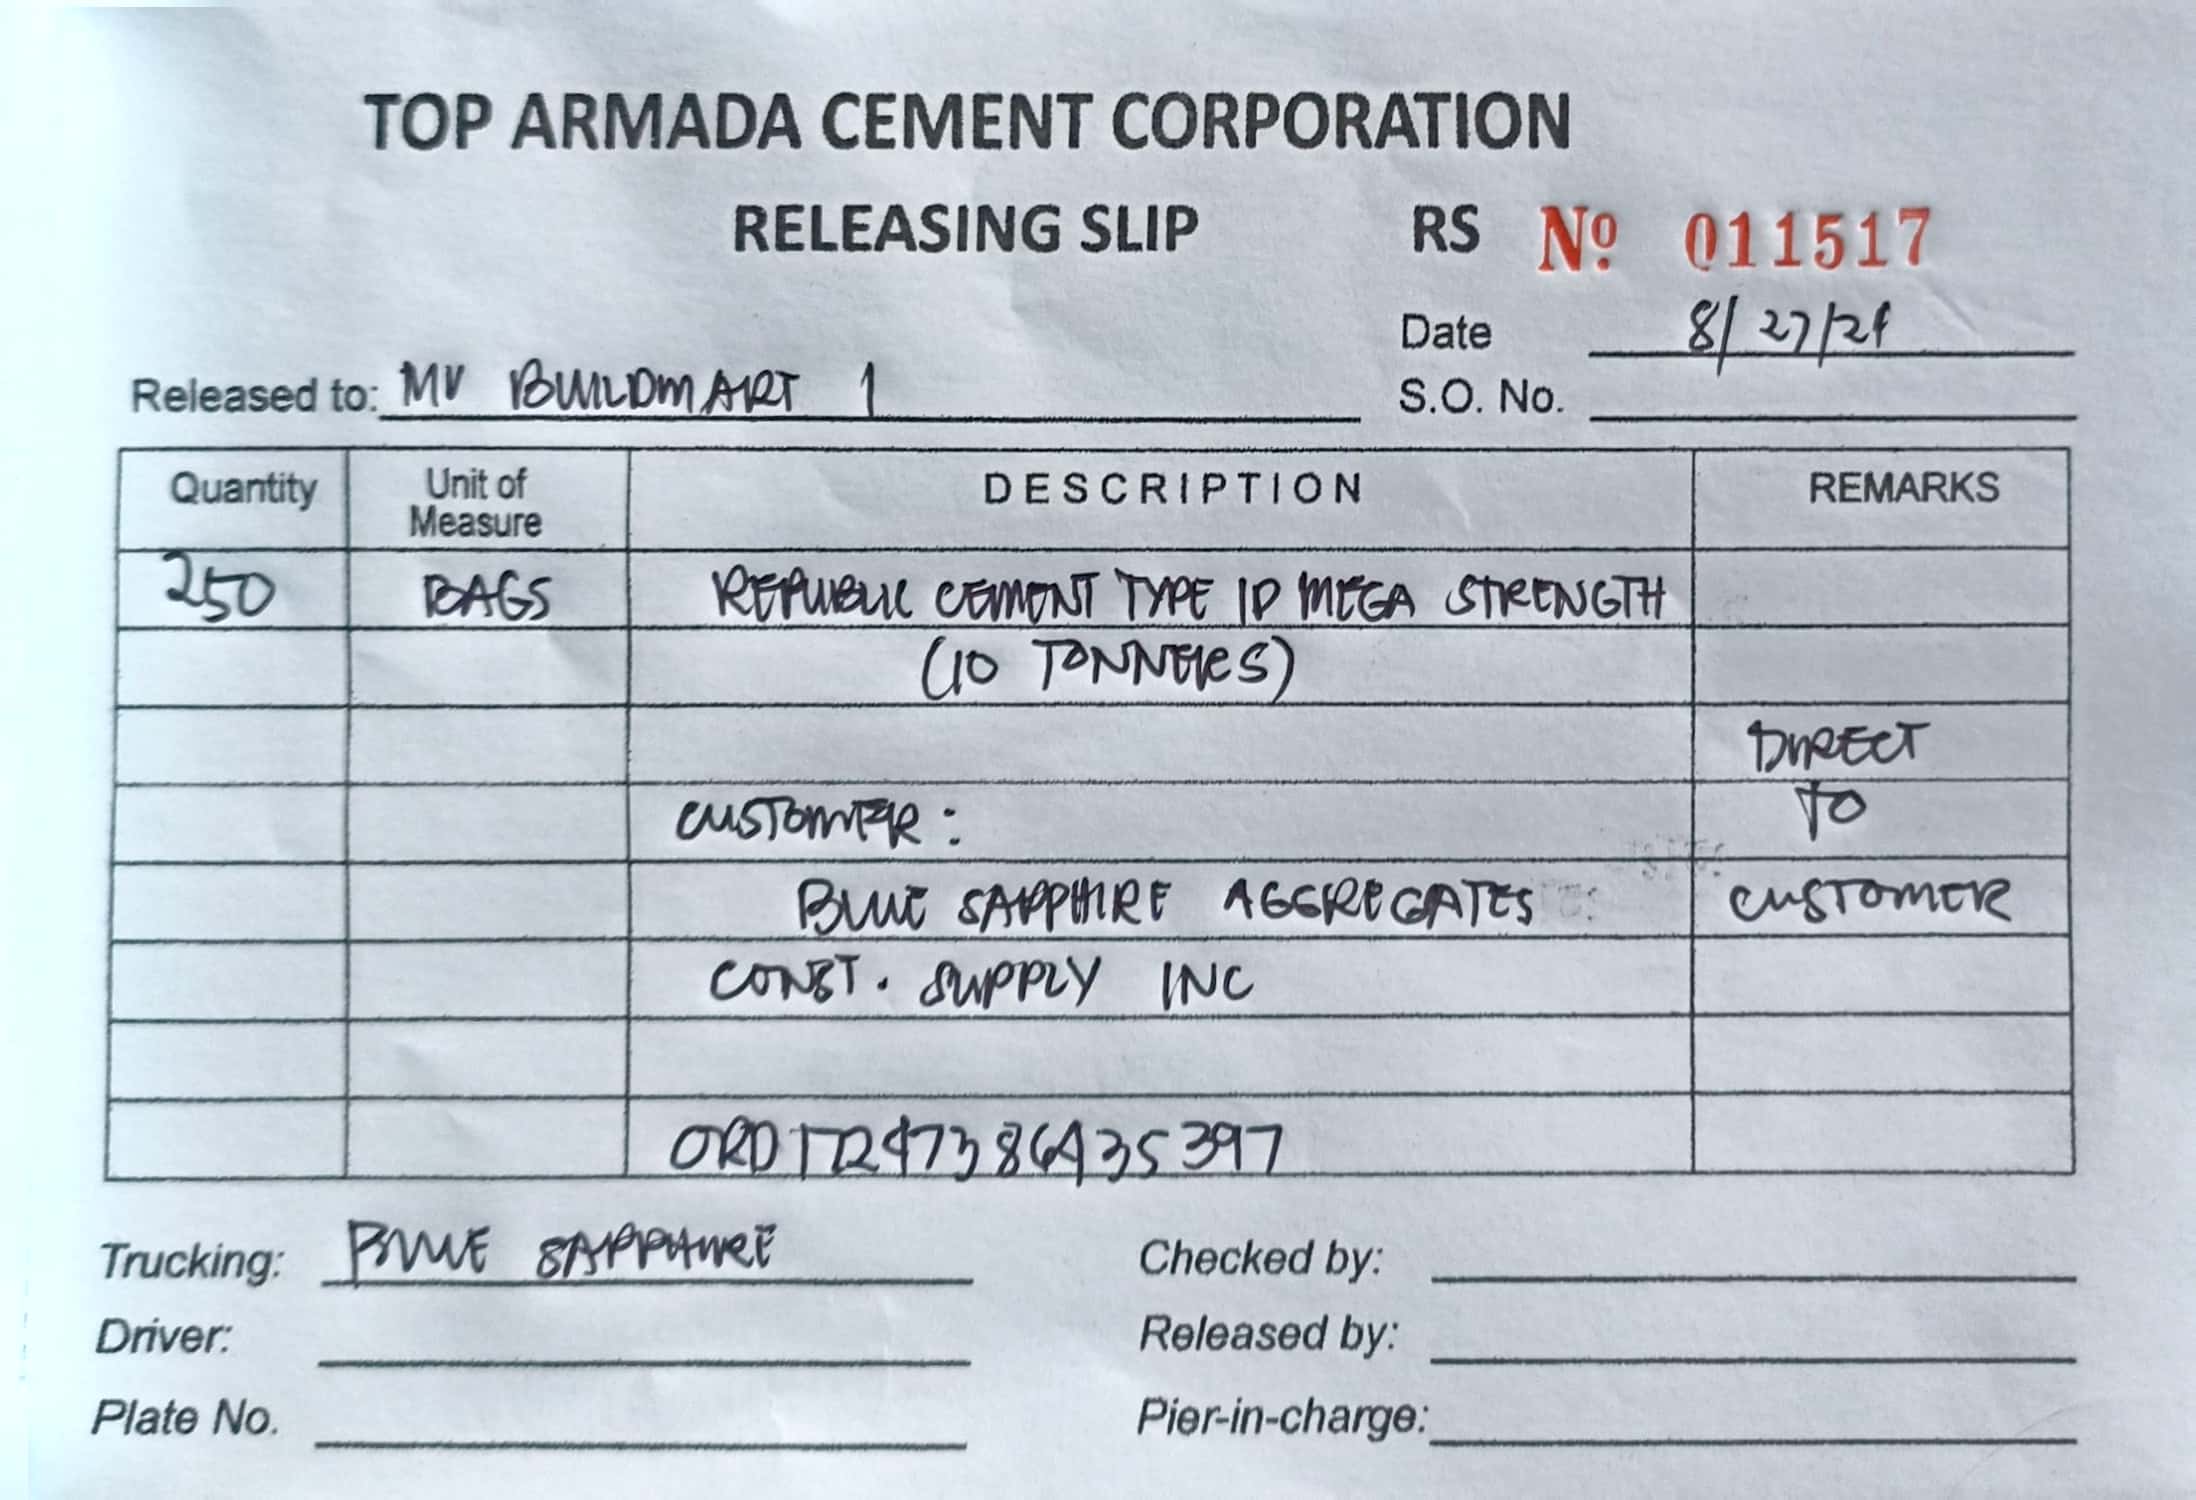 TOP ARMADA CEMENT CORPORATION
RELEASING SLIP RS № 011517
Date 8/27/24
Released to: MV BUILDMART 1 S.O. No.
Quantity Unit of Measure DESCRIPTION REMARKS
250 BAGS REPUBLIC CEMENT TYPE 1P MEGA STRENGTH
(10 TONNERS)
DIRECT
CUSTOMER: TO
BLUE SAPPHIRE AGGREGATES CUSTOMER
CONST. SUPPLY INC
ORD17247386435397
Trucking: BLUE SAPPHIRE Checked by:
Driver: Released by:
Plate No. Pier-in-charge: